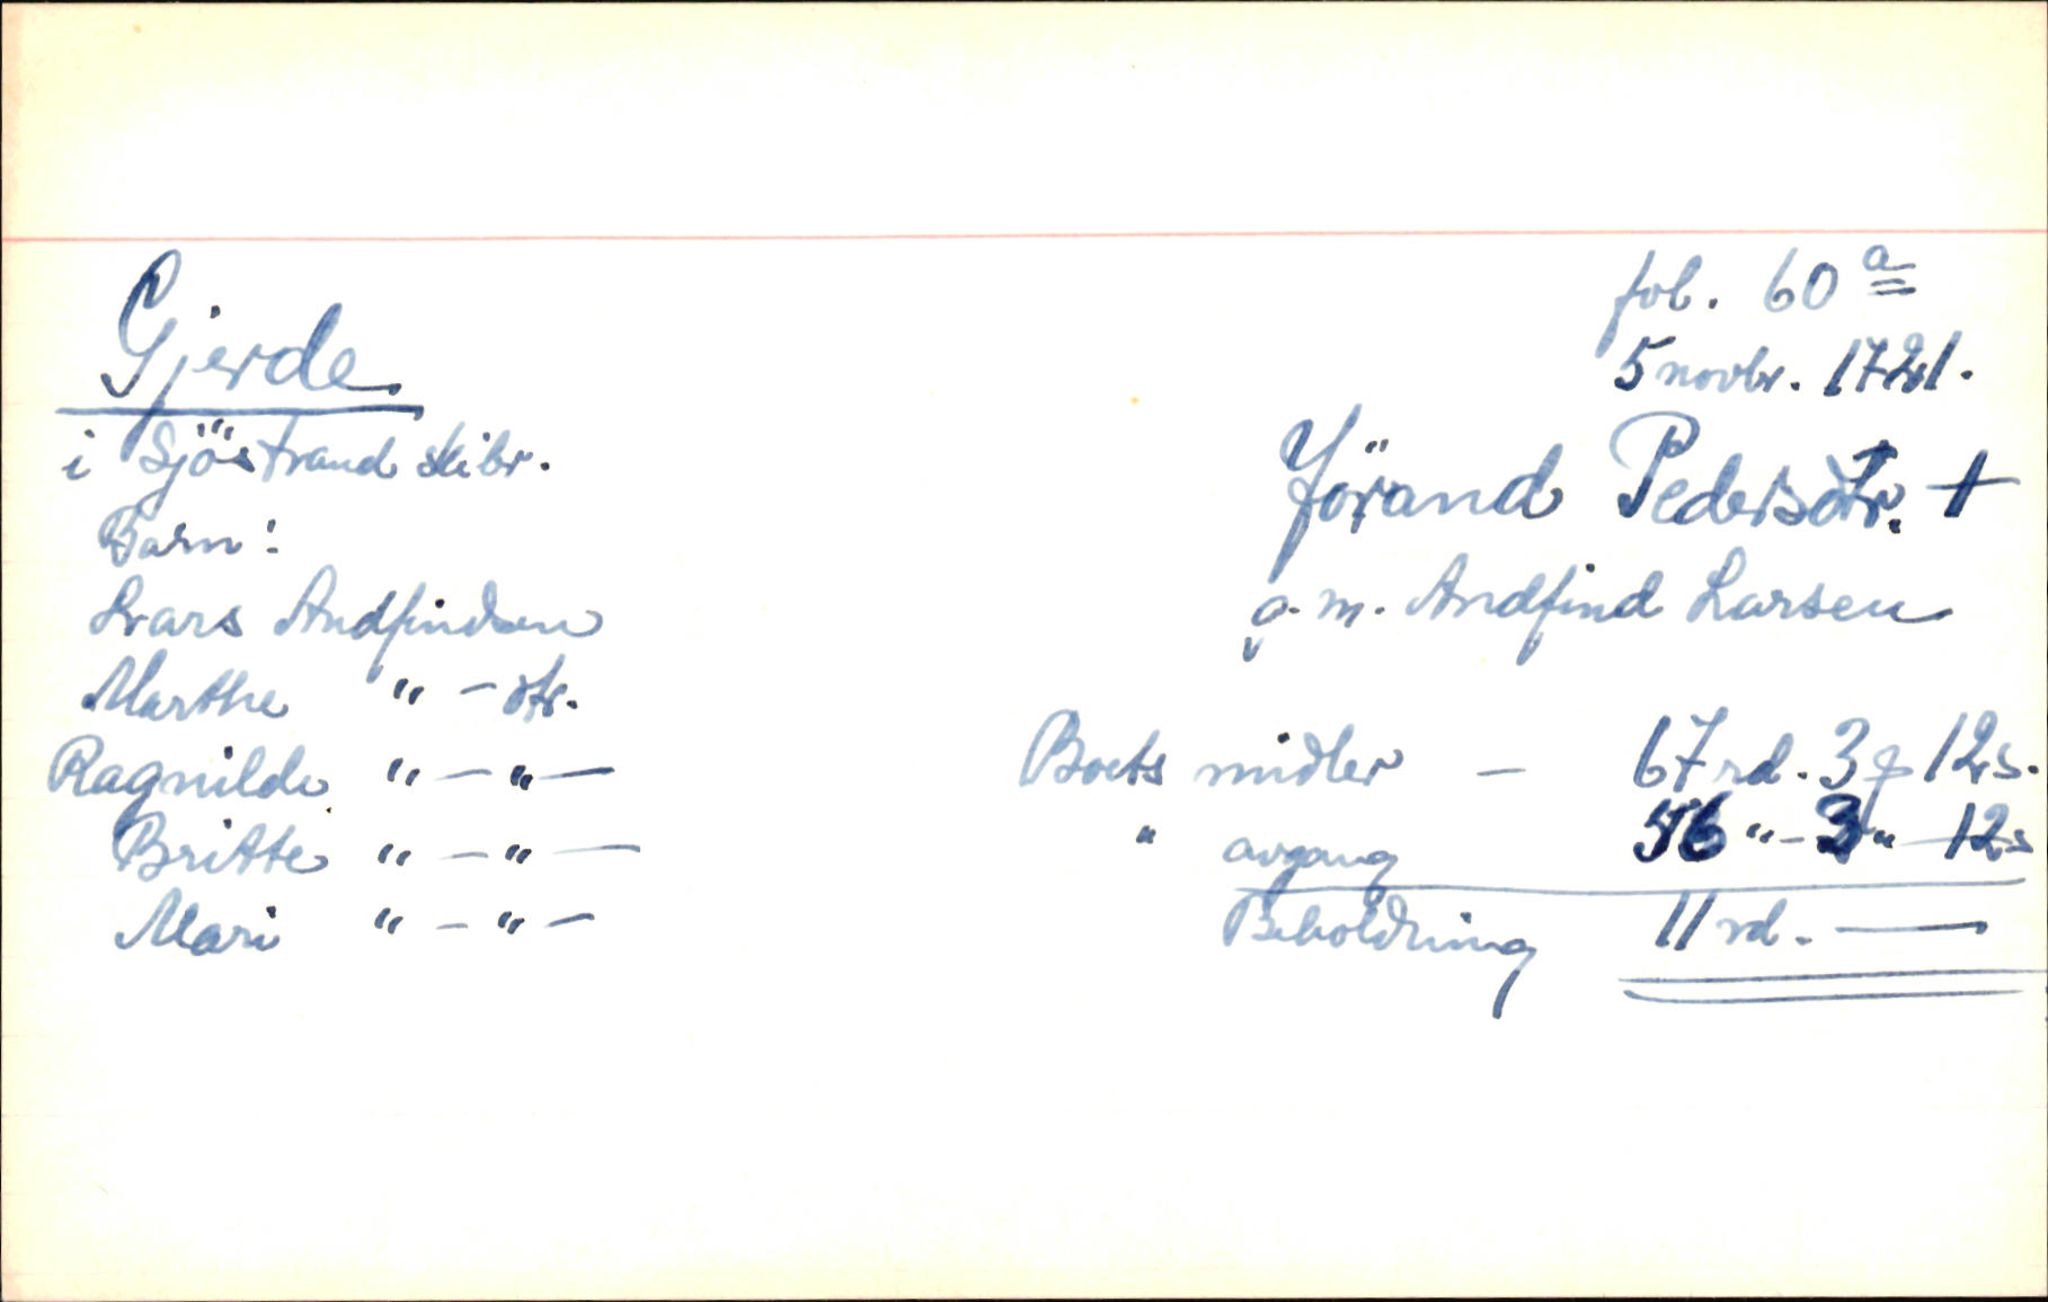 fol. 60 a
Gjerde
5 novbr. 1721.
i Sjöstrand skibr.
Jörand Pedersdtr. +
Barn:
g. m. Andfind Larsen
Lars Andfindsen
Marthe " - dtr.
Ragnilde " - " -
Britte " - " -
Mari " - " -
Boets midler - 67 rd. 3 q 12 s.
" avgang 56 " - 3 " - 12 s
Beholdning 11 rd. -